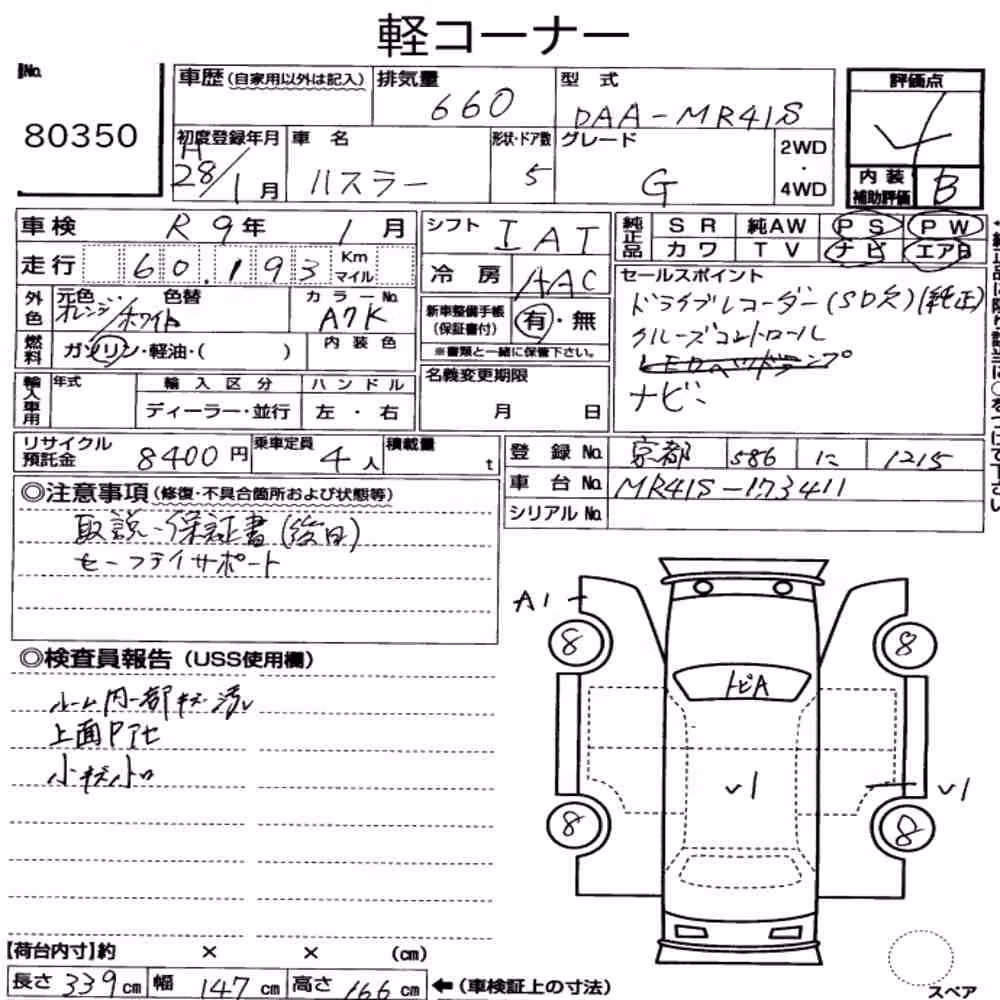 軽コーナー
No.
80350
車歴(自家用以外は記入)
排気量
660
型 式
DAA-MR41S
評価点
4
初度登録年月
H
28/1月
車 名
ハスラー
形状・ドア数
5
グレード
G
2WD
・
4WD
内 装
補助評価
B
車検 R 9年 1月
シフト IAT
純正品
SR 純AW PS PW
カワ TV ナビ エアB
走行 60,193 Km マイル
冷 房 AAC
セールスポイント
ドライブレコーダー(SD欠)(純正)
クルーズコントロール
LEDヘッドランプ
ナビ
外色
元色 色替
オレンジ/ホワイト
カラーNo.
A7K
新車整備手帳
(保証書付)
有・無
※書類と一緒に保管下さい。
燃料
ガソリン・軽油・( )
内 装 色
輸入車用
年式
輸 入 区 分
ディーラー・並行
ハ ン ド ル
左 ・ 右
名義変更期限
月 日
リサイクル
預託金
8400円
乗車定員
4人
積載量
t
登 録 No. 京都 586 に 1215
車 台 No. MR41S-173411
シリアル No.
◎注意事項(修復・不具合箇所および状態等)
取説・保証書(後日)
セーフティサポート
◎検査員報告(USS使用欄)
ルーム内一部キズ汚れ
上面Pアセ
小キズ小凹
A1
8
8
トビA
√1
√1
8
8
【荷台内寸】約 × × (cm)
長さ 339cm 幅 147cm 高さ 166cm ←(車検証上の寸法)
スペア